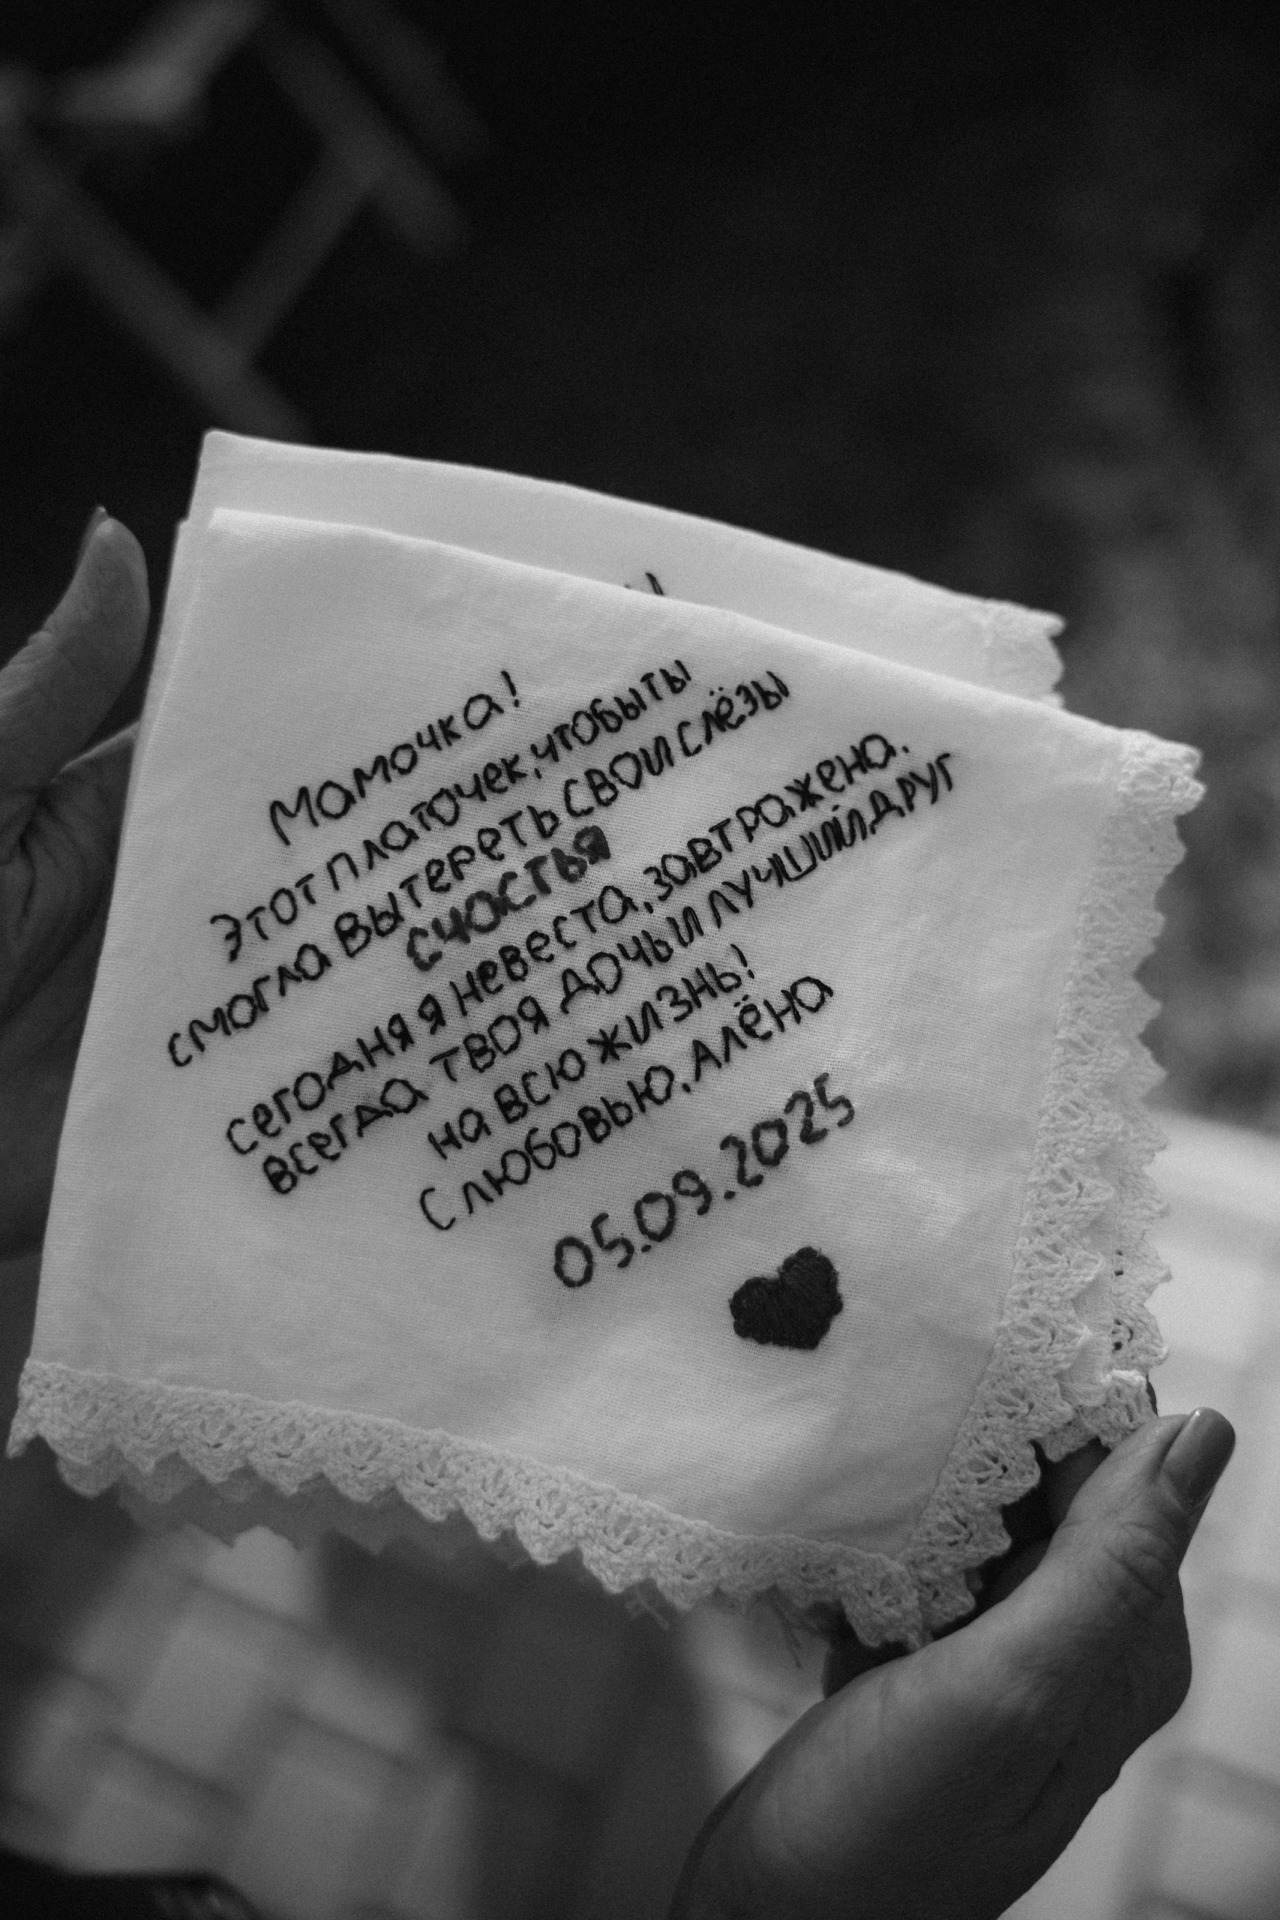 Мамочка!
Этот платочек, чтобы ты
смогла вытереть свои слёзы
счастья
сегодня я невеста, завтра жена.
всегда твоя дочь и лучший друг
на всю жизнь!
С любовью, Алёна
05.09.2025